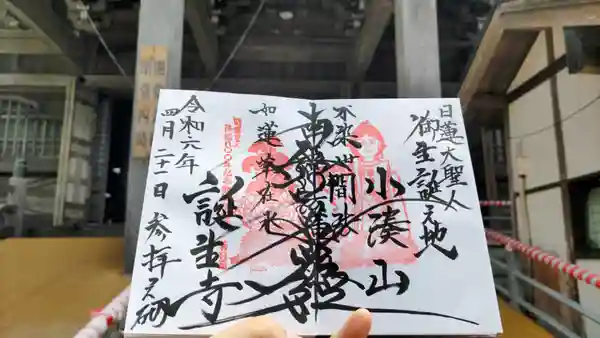 日蓮大聖人
御生誕之地
小湊山
不染世間法
南無妙法蓮華経
如蓮華在水
誕生寺
令和六年
四月二十一日
参拝之砌